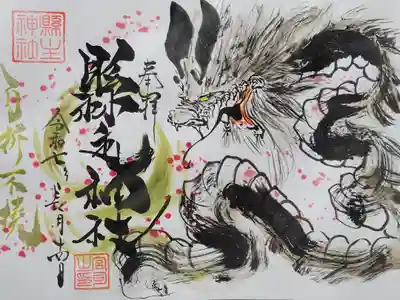 奉拝
縣主神社
縣主神社
令和七年長月
百折不撓
宮司之印